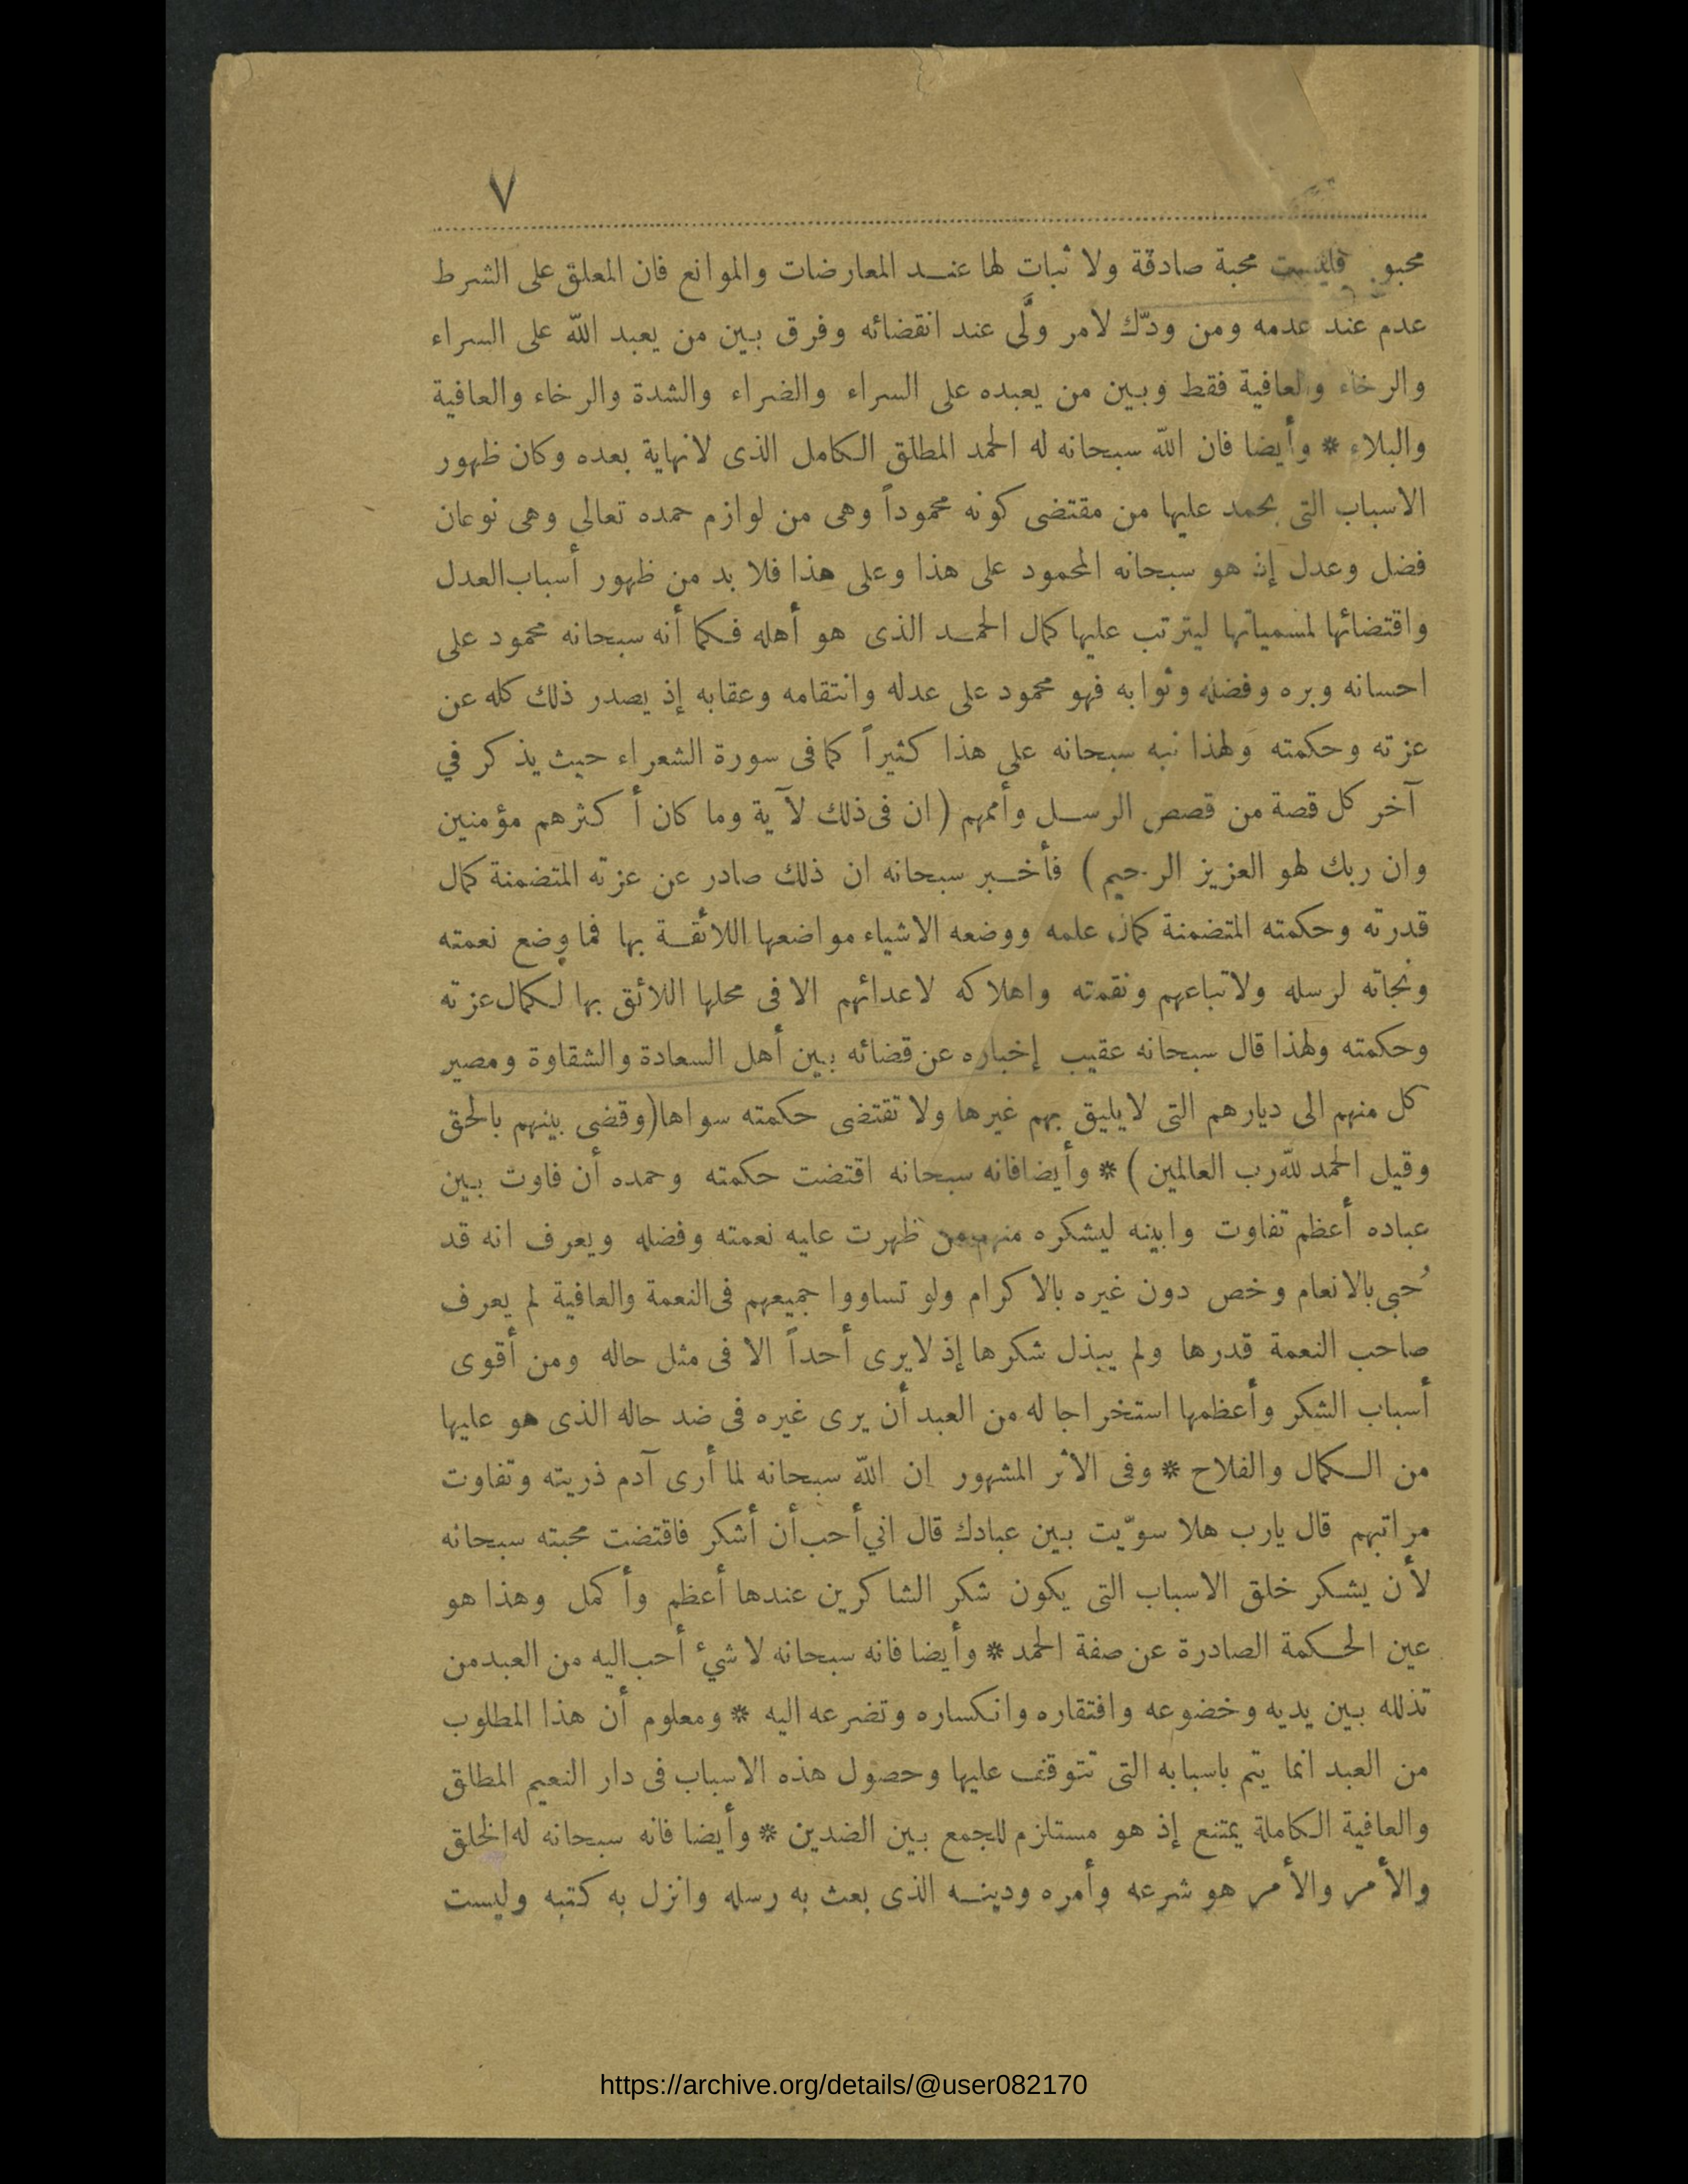 ٧
محبو فليست محبة صادقة ولا ثبات لها عند المعارضات والموانع فان المعلق على الشرط
عدم عند عدمه ومن ودّك لامر ولَّى عند انقضائه وفرق بين من يعبد الله على السراء
والرخاء والعافية فقط وبين من يعبده على السراء والضراء والشدة والرخاء والعافية
والبلاء * وأيضا فان الله سبحانه له الحمد المطلق الكامل الذى لانهاية بعده وكان ظهور
الاسباب التى يحمد عليها من مقتضى كونه محموداً وهى من لوازم حمده تعالى وهى نوعان
فضل وعدل إذ هو سبحانه المحمود على هذا وعلى هذا فلا بد من ظهور أسباب العدل
واقتضائها لمسمياتها ليترتب عليها كمال الحمد الذى هو أهله فكما أنه سبحانه محمود على
احسانه وبره وفضله وثوابه فهو محمود على عدله وانتقامه وعقابه إذ يصدر ذلك كله عن
عزته وحكمته ولهذا نبه سبحانه على هذا كثيراً كما فى سورة الشعراء حيث يذكر في
آخر كل قصة من قصص الرسل وأممهم (ان فى ذلك لآية وما كان أكثرهم مؤمنين
وان ربك لهو العزيز الرحيم) فأخبر سبحانه ان ذلك صادر عن عزته المتضمنة كمال
قدرته وحكمته المتضمنة كمال علمه ووضعه الاشياء مواضعها اللائقة بها فما وضع نعمته
ونجاته لرسله ولاتباعهم ونقمته واهلاكه لاعدائهم الا فى محلها اللائق بها لكمال عزته
وحكمته ولهذا قال سبحانه عقيب إخباره عن قضائه بين أهل السعادة والشقاوة ومصير
كل منهم الى ديارهم التى لايليق بهم غيرها ولا تقتضى حكمته سواها (وقضى بينهم بالحق
وقيل الحمد لله رب العالمين) * وأيضا فانه سبحانه اقتضت حكمته وحمده أن فاوت بين
عباده أعظم تفاوت وابينه ليشكره منهم من ظهرت عليه نعمته وفضله ويعرف انه قد
حُبى بالانعام وخص دون غيره بالاكرام ولو تساووا جميعهم فى النعمة والعافية لم يعرف
صاحب النعمة قدرها ولم يبذل شكرها إذ لايرى أحداً الا فى مثل حاله ومن أقوى
أسباب الشكر وأعظمها استخراجا له من العبد أن يرى غيره فى ضد حاله الذى هو عليها
من الكمال والفلاح * وفى الاثر المشهور ان الله سبحانه لما أرى آدم ذريته وتفاوت
مراتبهم قال يارب هلا سوّيت بين عبادك قال اني أحب أن أشكر فاقتضت محبته سبحانه
لأن يشكر خلق الاسباب التى يكون شكر الشاكرين عندها أعظم وأكمل وهذا هو
عين الحكمة الصادرة عن صفة الحمد * وأيضا فانه سبحانه لا شيء أحب اليه من العبد من
تذلله بين يديه وخضوعه وافتقاره وانكساره وتضرعه اليه * ومعلوم أن هذا المطلوب
من العبد انما يتم باسبابه التى تتوقف عليها وحصول هذه الاسباب فى دار النعيم المطلق
والعافية الكاملة يمتنع إذ هو مستلزم للجمع بين الضدين * وأيضا فانه سبحانه له الخلق
والأمر والأمر هو شرعه وأمره ودينه الذى بعث به رسله وانزل به كتبه وليست
https://archive.org/details/@user082170